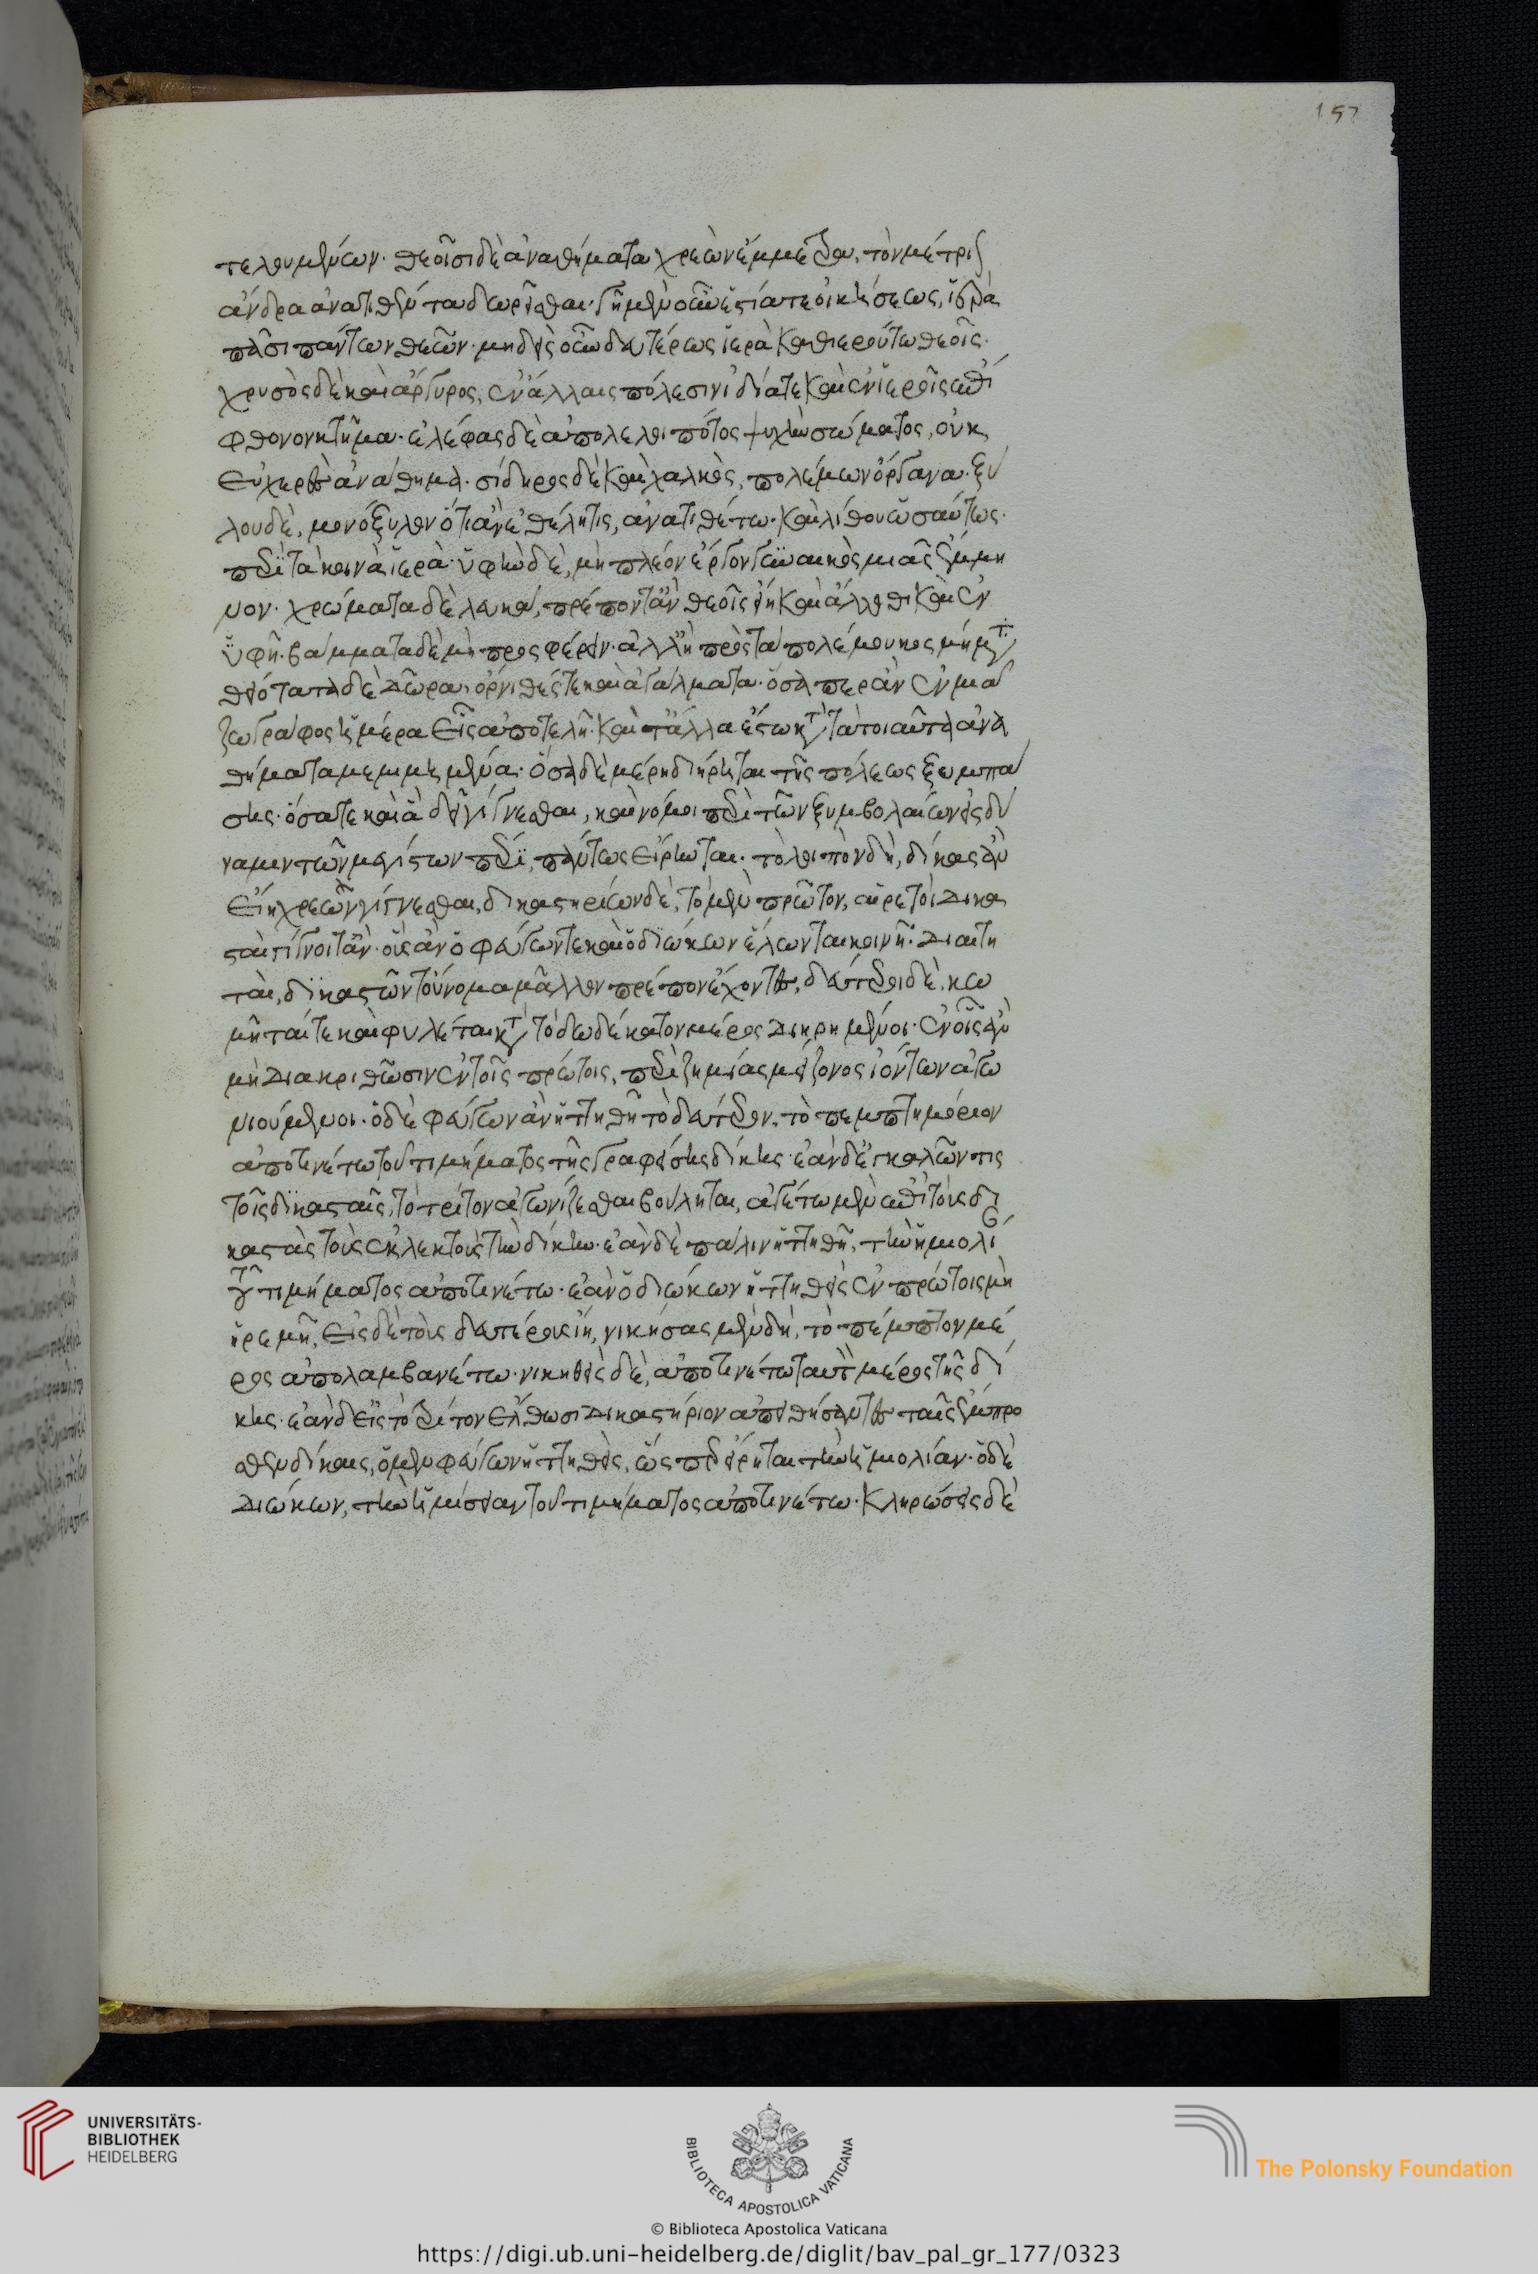 τελουμένων· θεοῖσι δὲ ἀναθήματα χρεὼν ἔμμετρα, τὸν μέτριον
ἄνδρα ἀνατιθέντα δωρεῖσθαι· γῆ μὲν οὖν ἑστία τε οἰκήσεως, ἱερὰ
πᾶσι πάντων θεῶν· μηδεὶς οὖν δευτέρως ἱερὰ καθιερούτω θεοῖς·
χρυσὸς δὲ καὶ ἄργυρος, ἐν ἄλλαις πόλεσιν ἰδία τε καὶ ἐν ἱεροῖς ἐπί
φθονον κτῆμα· ἐλέφας δὲ ἀπολελοιπότος ψυχὴν σώματος, οὐκ
εὐχερὲς ἀνάθημα· σίδηρος δὲ καὶ χαλκὸς, πολέμων ὄργανα· ξύ
λου δὲ, μονόξυλον ὅτι ἂν ἐθέλη τις, ἀνατιθέτω· καὶ λίθου ὡσαύτως·
περὶ τὰ κοινὰ ἱερὰ· ὑφὴν δὲ, μὴ πλέον ἔργον γυναικὸς μιᾶς ἔμμη
νον· χρώματα δὲ λευκὰ, πρέποντ' ἂν θεοῖς εἴη καὶ ἄλλοθι καὶ ἐν
ὑφῆ· βάμματα δὲ μὴ προσφέρειν· ἀλλ' ἢ πρὸς τὰ πολέμου κοσμήματα·
θειότατα δὲ δῶρα· ὄρνιθές τε καὶ ἀγάλματα· ὅσα περ ἂν ἐν μιᾶ
ζωγράφος ἡμέρα εἷς ἀποτελῆ· καὶ τἄλλα ἔστω κατὰ τὰ τοιαῦτα ἀνα
θήματα μεμιμημένα· ὅσα δὲ μέρη διήρηται τῆς πόλεως ξυμπά
σης· ὅσα τε καὶ ἃ δεῖ γίγνεσθαι, καὶ νόμοι περὶ τῶν ξυμβολαίων εἰς δύ
ναμιν τῶν μεγίστων πέρι, πάντως εἴρηνται· τὸ λοιπὸν δὴ, δίκας ἂν
εἴη χρεὼν γίγνεσθαι, δικαστηρίων δὲ, τὸ μὲν πρῶτον, αἱρετοὶ δικα
σταὶ γίγνοιτ' ἂν· οὓς ἂν ὁ φεύγων τε καὶ ὁ διώκων ἕλωνται κοινῆ· διαιτη
ταὶ, δικαστῶν τοὔνομα μᾶλλον πρέπον ἔχοντες, δεύτεροι δὲ, κω
μῆταί τε καὶ φυλέται κατὰ τὸ δωδέκατον μέρος διῃρημένοι· ἐν οἷς ἂν
μὴ διακριθῶσιν ἐν τοῖς πρώτοις, περὶ ζημίας μείζονος ἰόντων ἀγω
νιούμενοι· ὁ δὲ φεύγων ἂν ἡττηθῆ τὸ δεύτερον, τὸ πεμπτημόριον
ἀποτινέτω τοῦ τιμήματος τῆς γραφείσης δίκης· ἐὰν δ' ἐγκαλῶν τις
τοῖς δικασταῖς, τὸ τρίτον ἀγωνίζεσθαι βούληται, ἀγέτω μὲν ἐπὶ τοὺς δι
καστὰς τοὺς ἐκλεκτοὺς τὴν δίκην· ἐὰν δὲ πάλιν ἡττηθῆ, τὴν ἡμιολί
αν τοῦ τιμήματος ἀποτινέτω· ἐὰν ὁ διώκων ἡττηθεὶς ἐν πρώτοις μὴ
ἠρεμῆ, εἰς δὲ τοὺς δευτέρους ἴη, νικήσας μὲν δὴ, τὸ πέμπτον μέ
ρος ἀπολαμβανέτω· νικηθεὶς δὲ, ἀποτινέτω ταυτὸν μέρος τῆς δί
κης· ἐὰν δ' εἰς τὸ τρίτον ἔλθωσι δικαστήριον ἀπειθήσαντες ταῖς ἔμπρο
σθεν δίκαις, ὁ μὲν φεύγων ἡττηθεὶς, ὥσπερ εἴρηται τὴν ἡμιολίαν· ὁ δὲ
διώκων, τὴν ἡμίσειαν τοῦ τιμήματος ἀποτινέτω· κληρώσεις δὲ
157
UNIVERSITÄTS-
BIBLIOTHEK
HEIDELBERG
BIBLIOTECA APOSTOLICA VATICANA
The Polonsky Foundation
© Biblioteca Apostolica Vaticana
https://digi.ub.uni-heidelberg.de/diglit/bav_pal_gr_177/0323